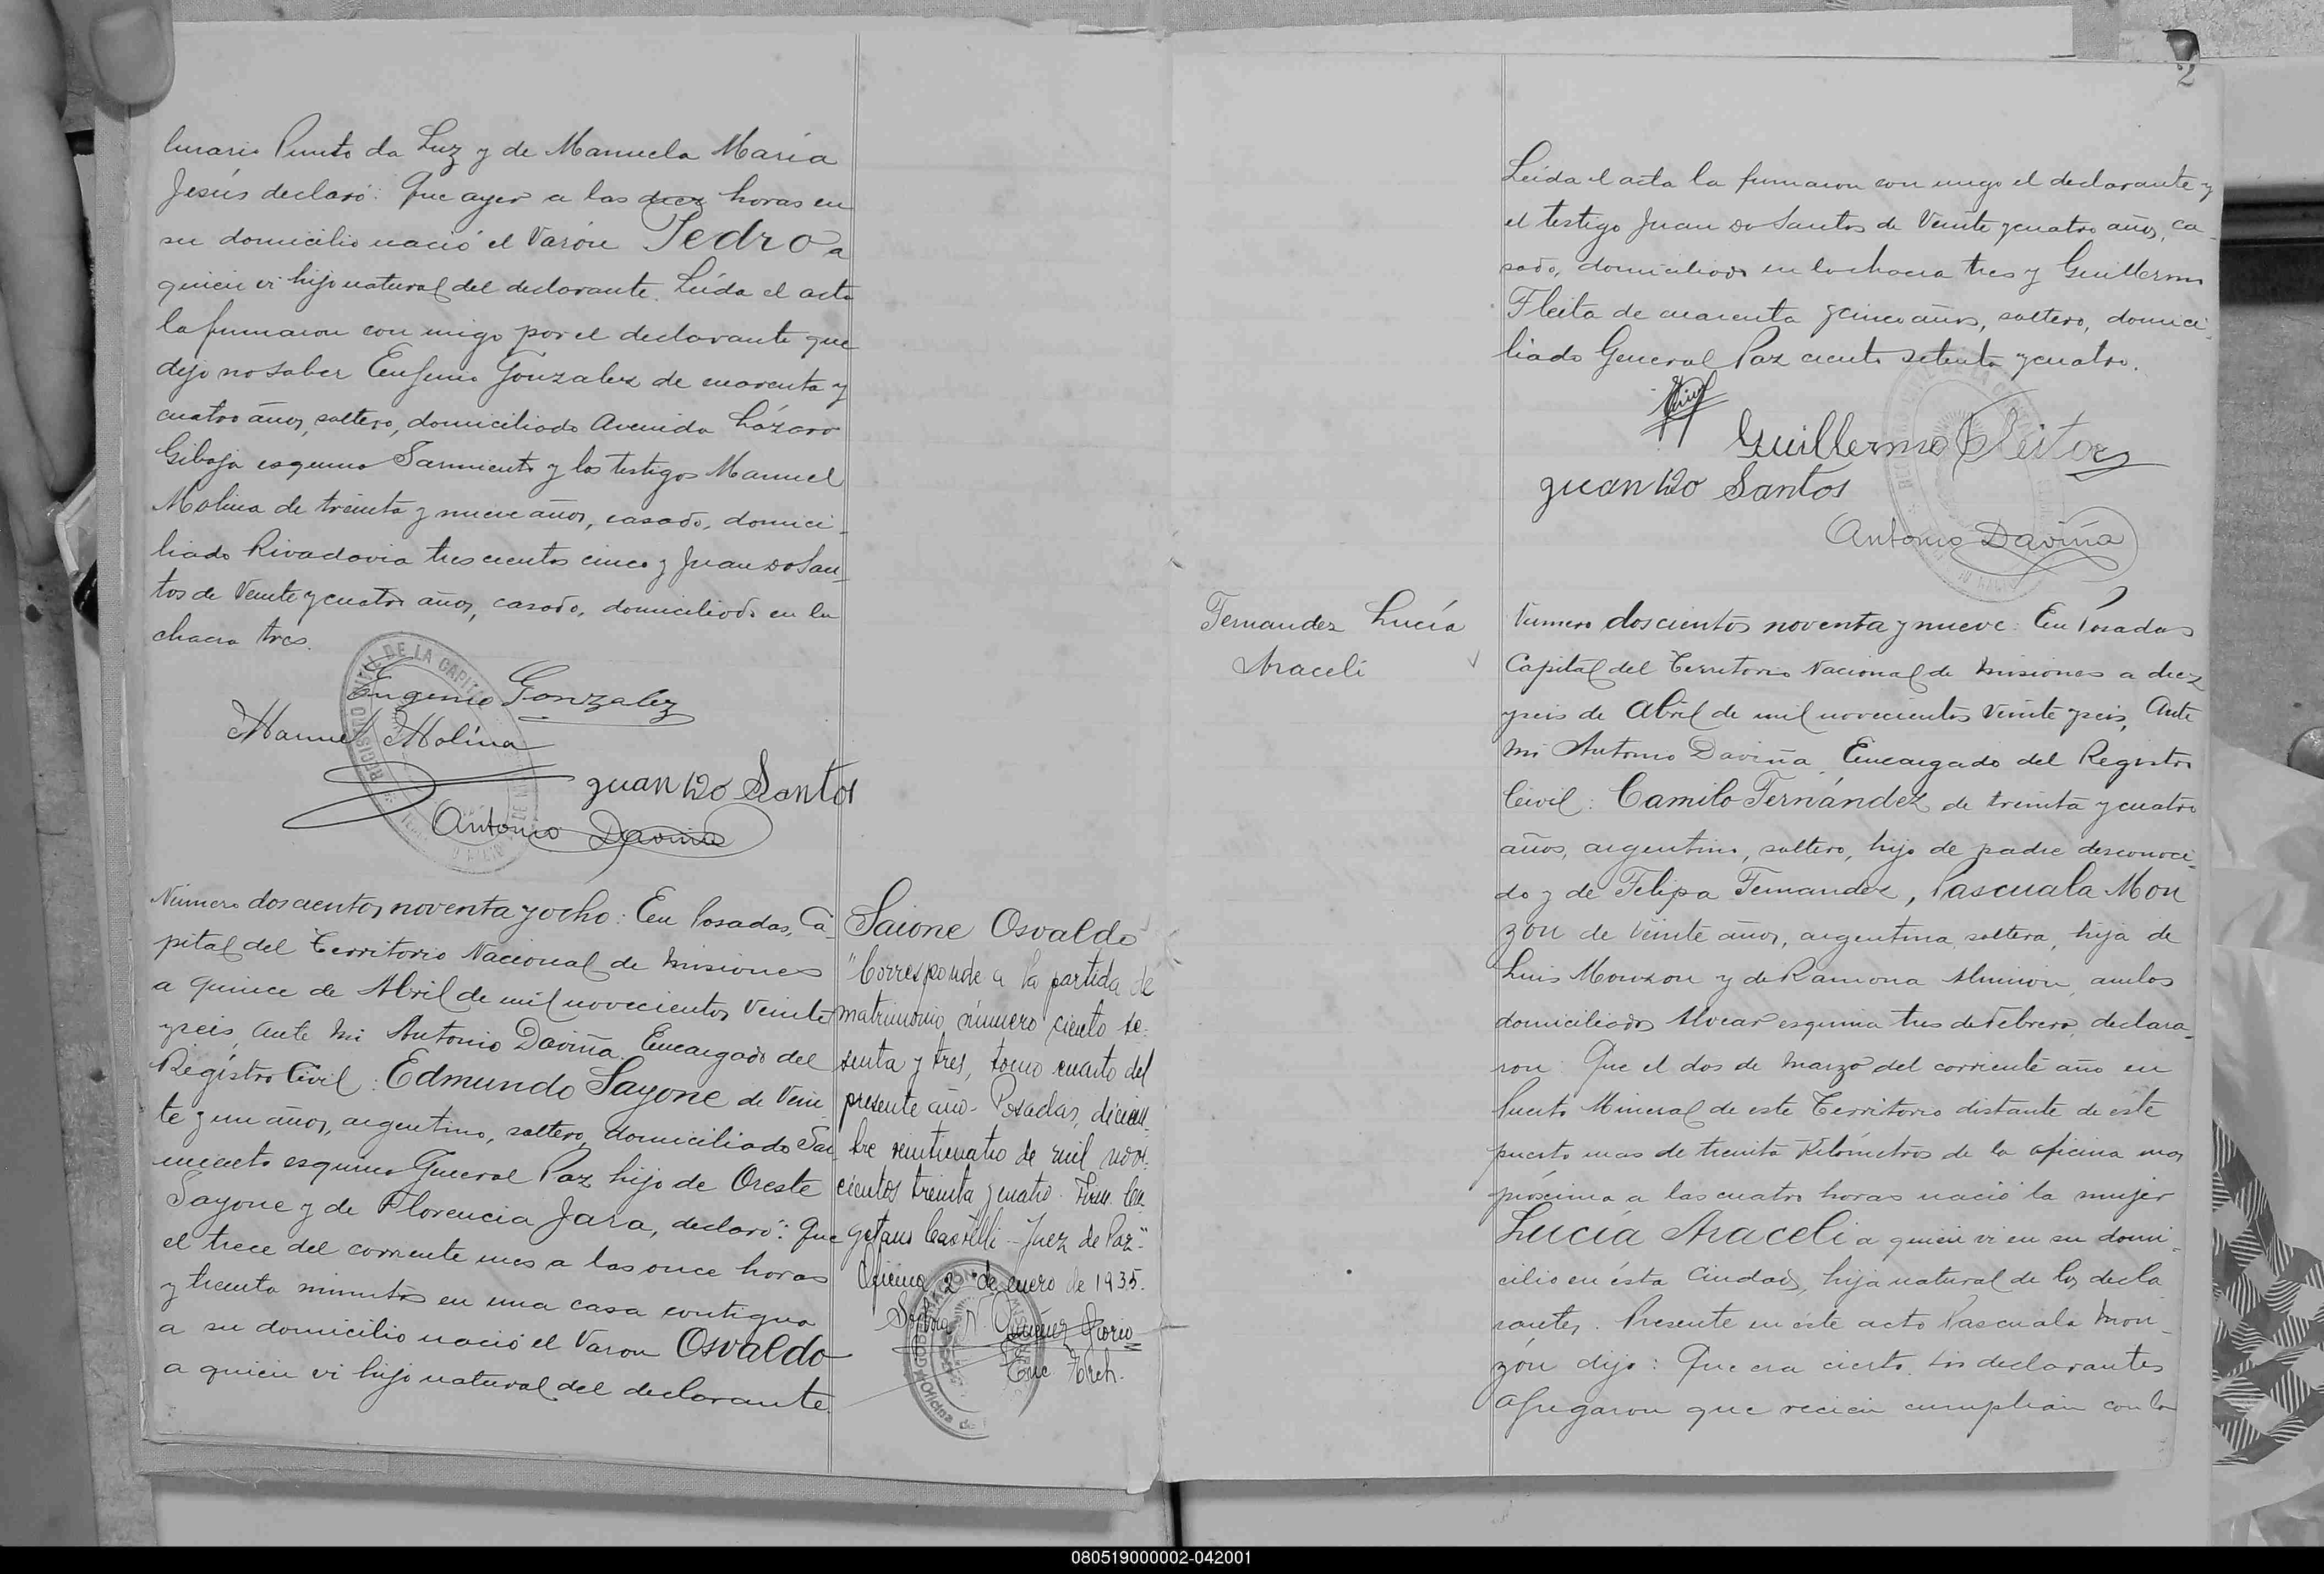 linario Pinto da Luz y de Manuela María
Jesús declaró: Que ayer a las diez horas en
su domicilio nació el Varón Pedro a
quien vi hijo natural del declarante. Leída el acta
la firmaron con migo por el declarante que
dijo no saber Eugenio Gonzalez de cuarenta y
cuatro años, soltero, domiciliado Avenida Lázaro
Gibaja esquina Sarmiento y los testigos Manuel
Molina de treinta y nueve años, casado, domici-
liado Rivadavia trescientos cinco y Juan Do San-
tos de Veinte y cuatro años, casado, domiciliado en la
chacra tres.
Eugenio Gonzalez
Manuel Molina
Juan Do Santos
Antonio Daviña
Número doscientos noventa y ocho: En Posadas, Ca-
pital del Territorio Nacional de Misiones
a quince de Abril de mil novecientos Veinte
y seis, ante mi Antonio Daviña. Encargado del
Registro Civil: Edmundo Sayone de Vein-
te y un años, argentino, soltero, domiciliado Sar-
miento esquina General Paz hijo de Oreste
Sayone y de Florencia Jara, declaró: Que
el trece del corriente mes a las once horas
y treinta minutos en una casa contigua
a su domicilio nació el Varon Osvaldo
a quien vi hijo natural del declarante.
Saione Osvaldo
"Corresponde a la partida de
matrimonio número ciento se-
senta y tres, tomo cuarto del
presente año. Posadas, diciem-
bre veinticuatro de mil nove-
cientos treinta y cuatro. Firm. Ca-
yetano Castelli - Juez de Paz."
Oficina, 2 de enero de 1935.
Enc Arch.
2
Leída el acta la firmaron con migo el declarante y
el testigo Juan Do Santos de Veinte y cuatro años, ca-
sado, domiciliado en la chacra tres y Guillermo
Fleita de cuarenta y cinco años, soltero, domici-
liado General Paz ciento setenta y cuatro.
Guillermo Fleitas
Juan Do Santos
Antonio Daviña
Fernandez Lucía
Araceli
Numero doscientos noventa y nueve: En Posadas
Capital del Territorio Nacional de Misiones a diez
y seis de Abril de mil novecientos Veinte y seis, Ante
mi Antonio Daviña, Encargado del Registro
Civil: Camilo Fernández de treinta y cuatro
años, argentino, soltero, hijo de padre desconoci-
do y de Felipa Fernandez, Pascuala Mon
zón de Veinte años, argentina, soltera, hija de
Luis Monzon y de Ramona Almiron, ambos
domiciliados Alvear esquina tres de Febrero, declara-
ron: Que el dos de Marzo del corriente año en
Puerto Mineral de este Territorio distante de este
puerto mas de treinta Kilómetros de la oficina mas
próxima a las cuatro horas nació la mujer
Lucía Araceli a quien vi en su domi-
cilio en ésta Ciudad, hija natural de los decla
rantes. Presente en éste acto Pascuala Mon-
zón dijo: Que era cierto. Los declarantes
agregaron que recien cumplian con la
080519000002-042001